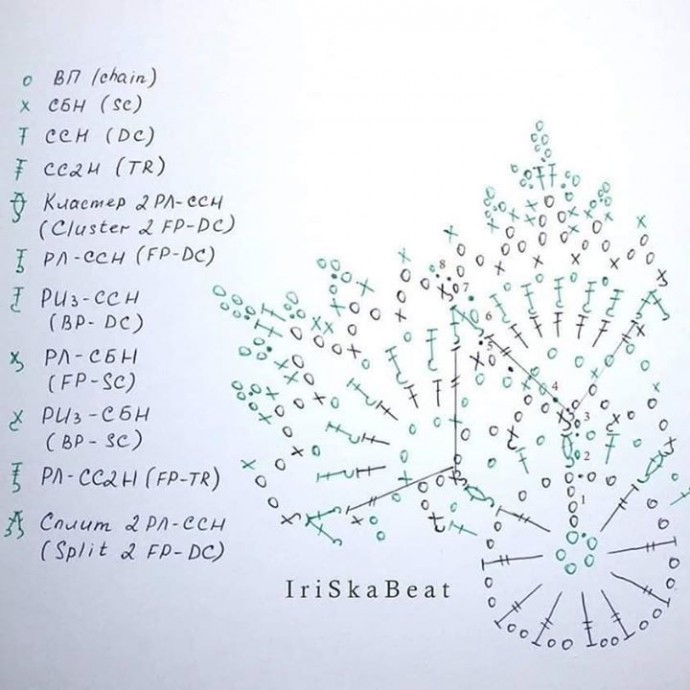 ВП (chain)
СБН (SC)
ССН (DC)
СС2Н (TR)
Кластер 2 РЛ-ССН
(Cluster 2 FP-DC)
РЛ-ССН (FP-DC)
РИз-ССН
(BP-DC)
РЛ-СБН
(FP-SC)
РИз-СБН
(BP-SC)
РЛ-СС2Н (FP-TR)
Сплит 2 РЛ-ССН
(Split 2 FP-DC)
8
7
6
5
4
3
2
1
IriSkaBeat